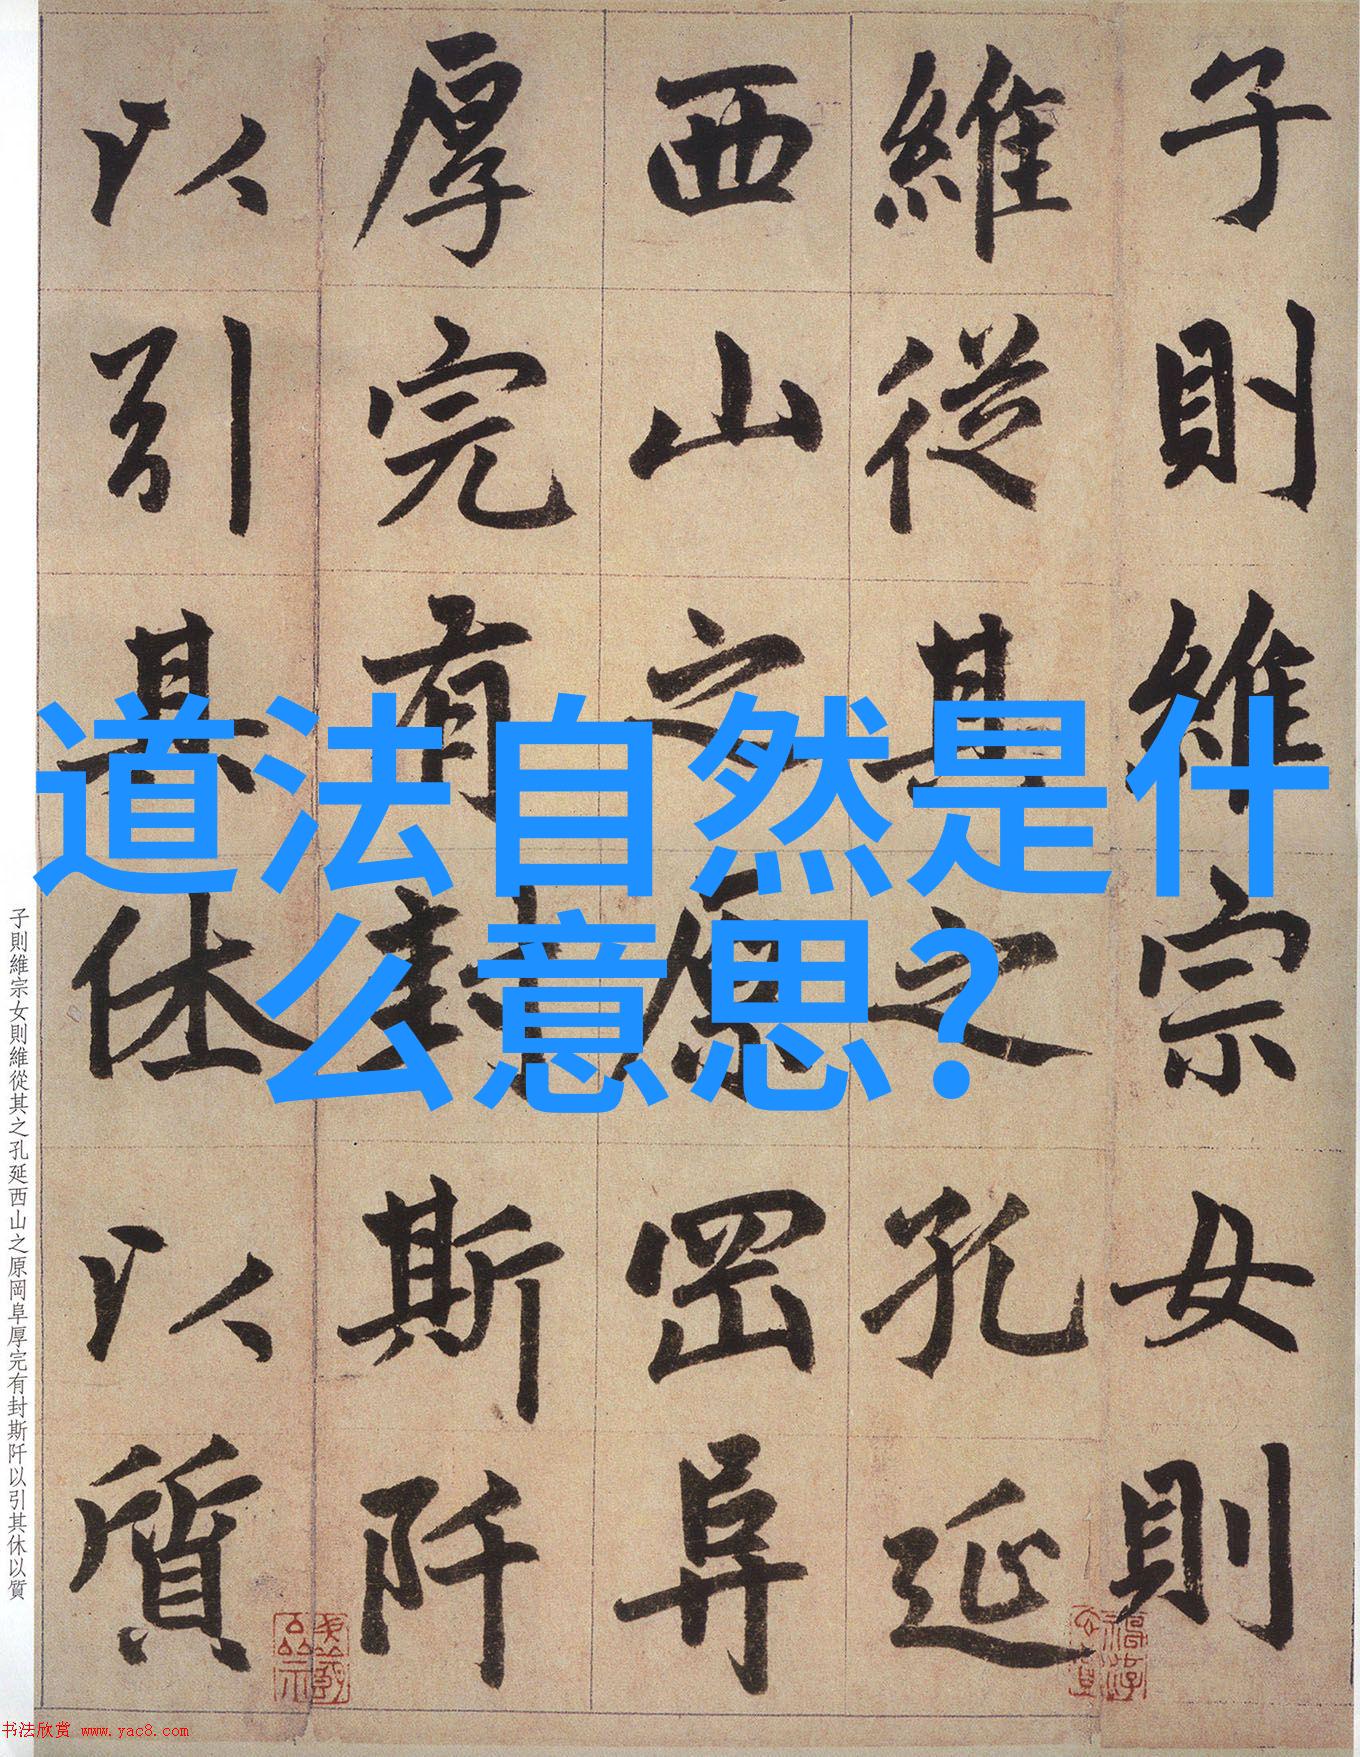 子則維宗女則
維從其之孔延
西山之原岡阜
厚完有封斯阡
以引其休以質
道法自然是什
么意思?
子則維宗女則維從其之孔延西山之原岡阜厚完有封斯阡以引其休以質
书法欣赏 www.yac8.com